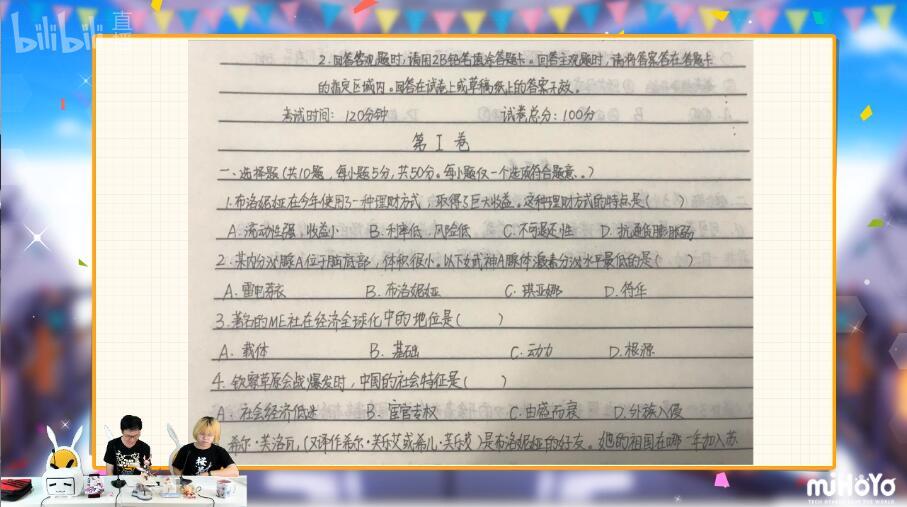 bilibili 直播
2.回答客观题时,请用2B铅笔填涂答题卡。回答主观题时,请将答案答在答题卡
的指定区域内。回答在试卷上或草稿纸上的答案无效。
考试时间: 120分钟 试卷总分: 100分
第 I 卷
一、选择题(共10题,每小题5分,共50分。每小题仅一个选项符合题意。)
1.布洛妮娅在今年使用了一种理财方式,取得了巨大收益。这种理财方式的特点是( )
A.流动性强,收益小 B.利率低 风险低 C.不可退还性 D.抗通货膨胀弱
2.某内分泌腺A位于脑底部,体积很小。以下女武神A腺体激素分泌水平最低的是( )
A.雷电芽衣 B.布洛妮娅 C.琪亚娜 D.符华
3.著名的ME社在经济全球化中的地位是( )
A.载体 B.基础 C.动力 D.根源
4.铁雾草原会战爆发时,中国的社会特征是( )
A.社会经济低迷 B.宦官专权 C.由盛而衰 D.外族入侵
希尔·芙洛瓦,(又译作希尔·芙乐艾或希儿·芙乐艾)是布洛妮娅的好友。她的祖国在哪一年加入苏
miHoYo
TECH OTAKUS SAVE THE WORLD